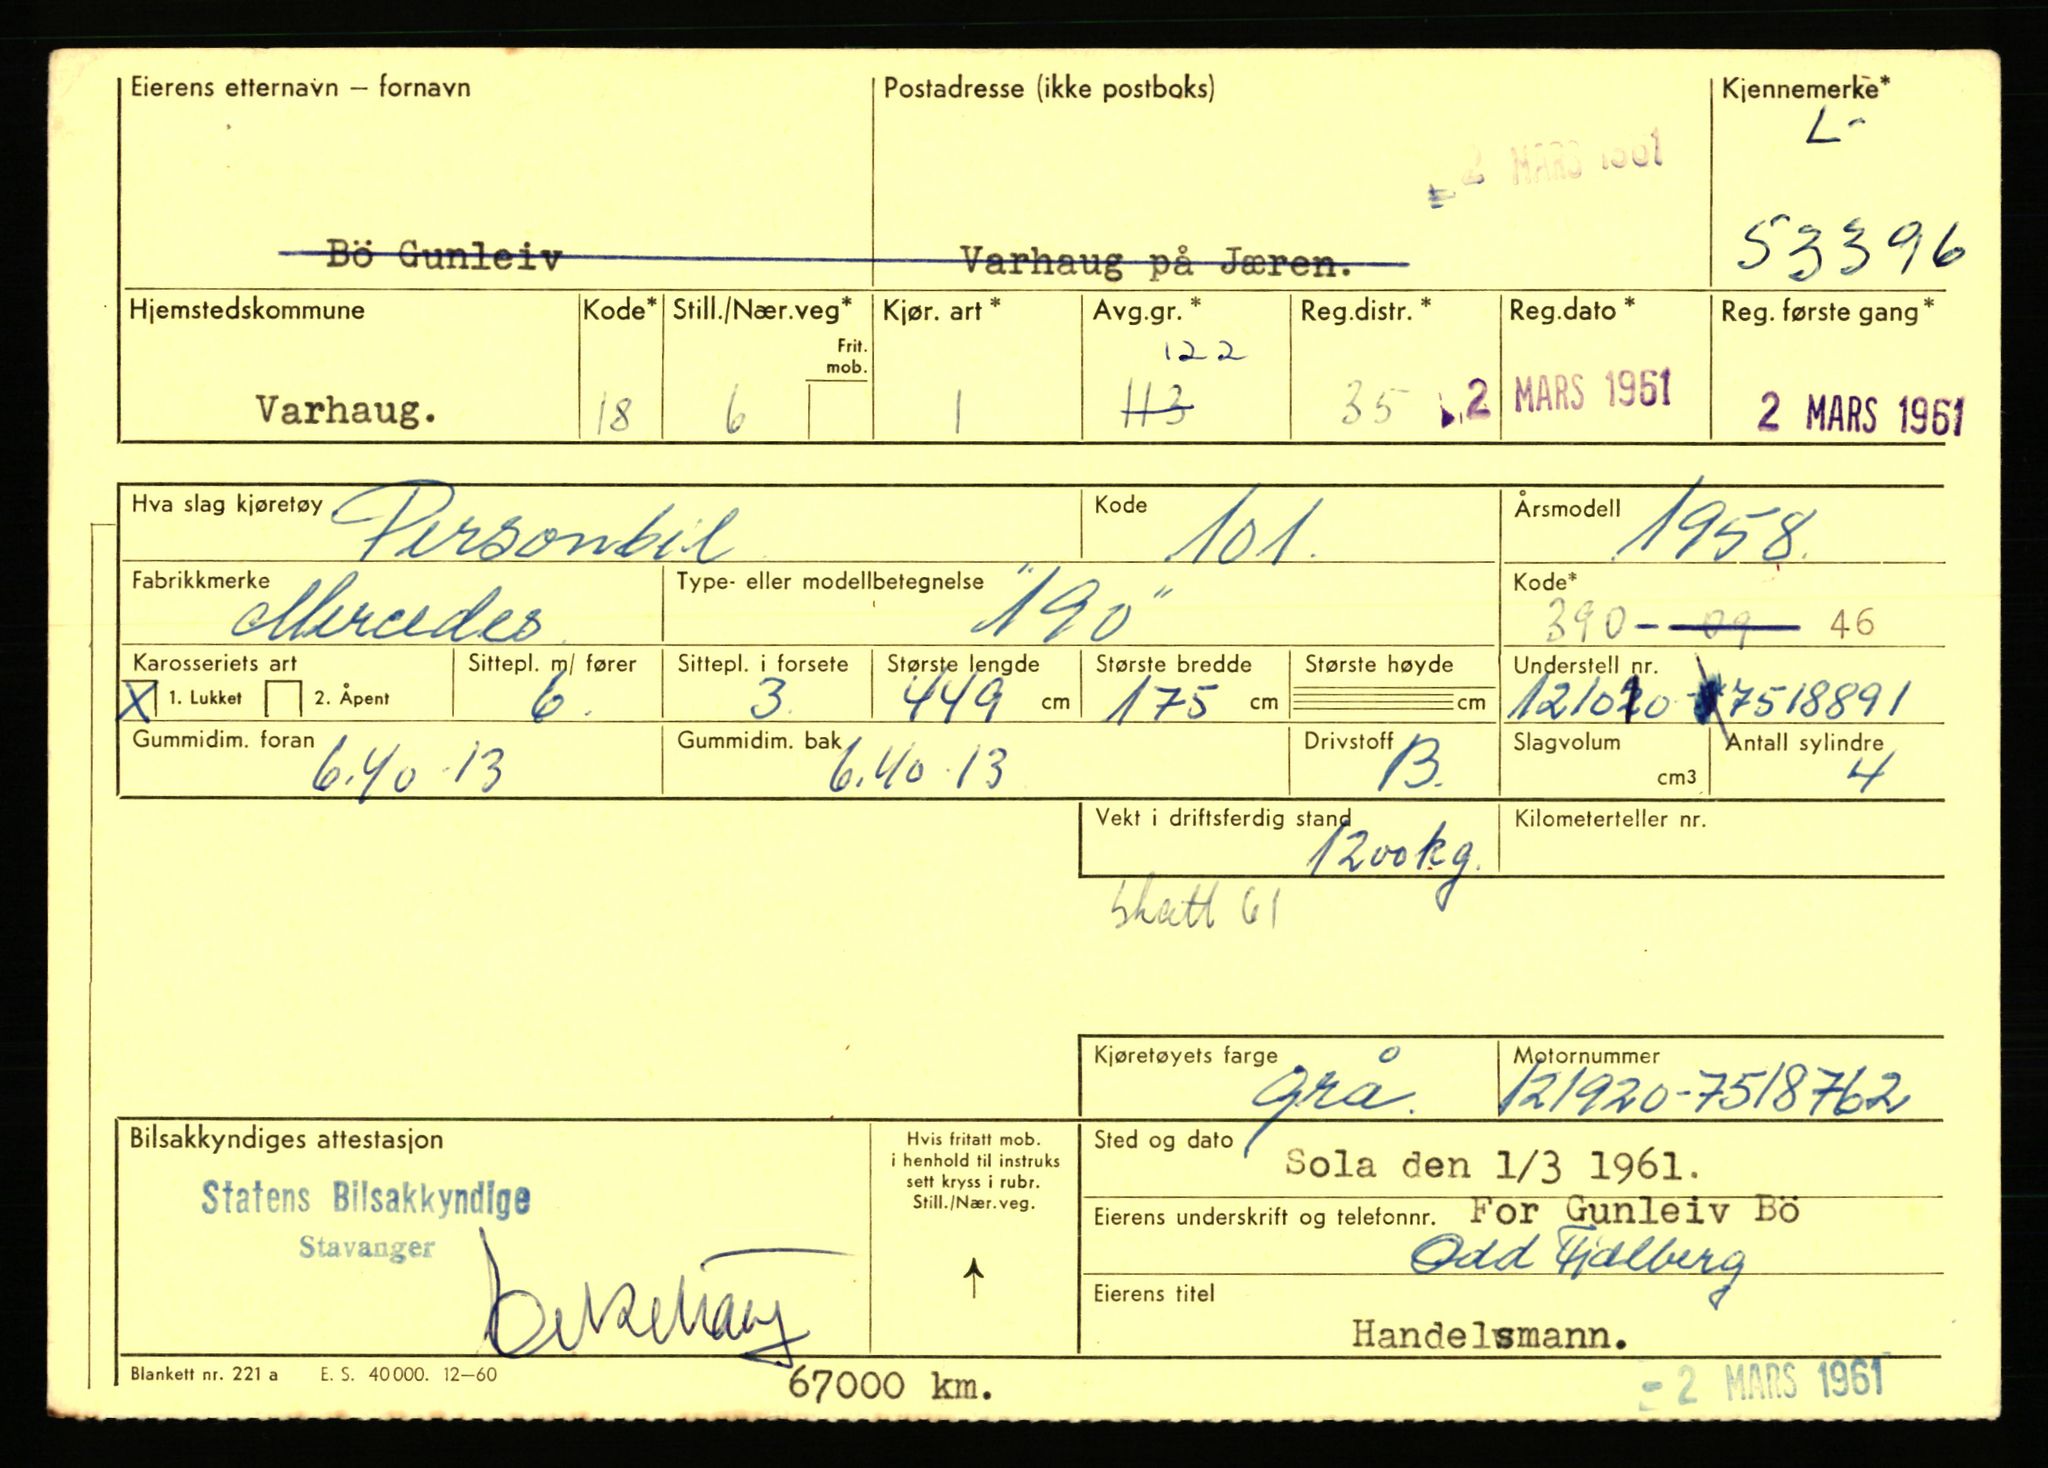 Eierens etternavn – fornavn Postadresse (ikke postboks) Kjennemerke*
L-
2 MARS 1961
Bö Gunleiv Varhaug på Jæren. 53396
Hjemstedskommune Kode* Still./Nær.veg* Kjør. art* Avg.gr.* Reg.distr.* Reg.dato* Reg. første gang*
Frit. mob. 122
Varhaug. 18 6 1 113 35 2 MARS 1961 2 MARS 1961
Hva slag kjøretøy Personbil Kode 101. Årsmodell 1958.
Fabrikkmerke Mercedes Type- eller modellbetegnelse "190" Kode*
390 - 09 46
Karosseriets art Sittepl. m/ fører Sittepl. i forsete Største lengde Største bredde Største høyde Understell nr.
X 1. Lukket 2. Åpent 6. 3. 449 cm 175 cm cm 121010-7518891
Gummidim. foran 6.40-13 Gummidim. bak 6.40-13 Drivstoff B. Slagvolum cm3 Antall sylindre 4
Vekt i driftsferdig stand 1200kg. Kilometerteller nr.
skatt 61
Kjøretøyets farge grå. Motornummer 121920-7518762
Bilsakkyndiges attestasjon
Statens Bilsakkyndige
Stavanger
Hvis fritatt mob.
i henhold til instruks
sett kryss i rubr.
Still./Nær.veg.
Sted og dato Sola den 1/3 1961.
Eierens underskrift og telefonnr. For Gunleiv Bö
Odd Fjælberg
Eierens titel
Handelsmann.
Blankett nr. 221 a E. S. 40000. 12–60 67000 km. - 2 MARS 1961